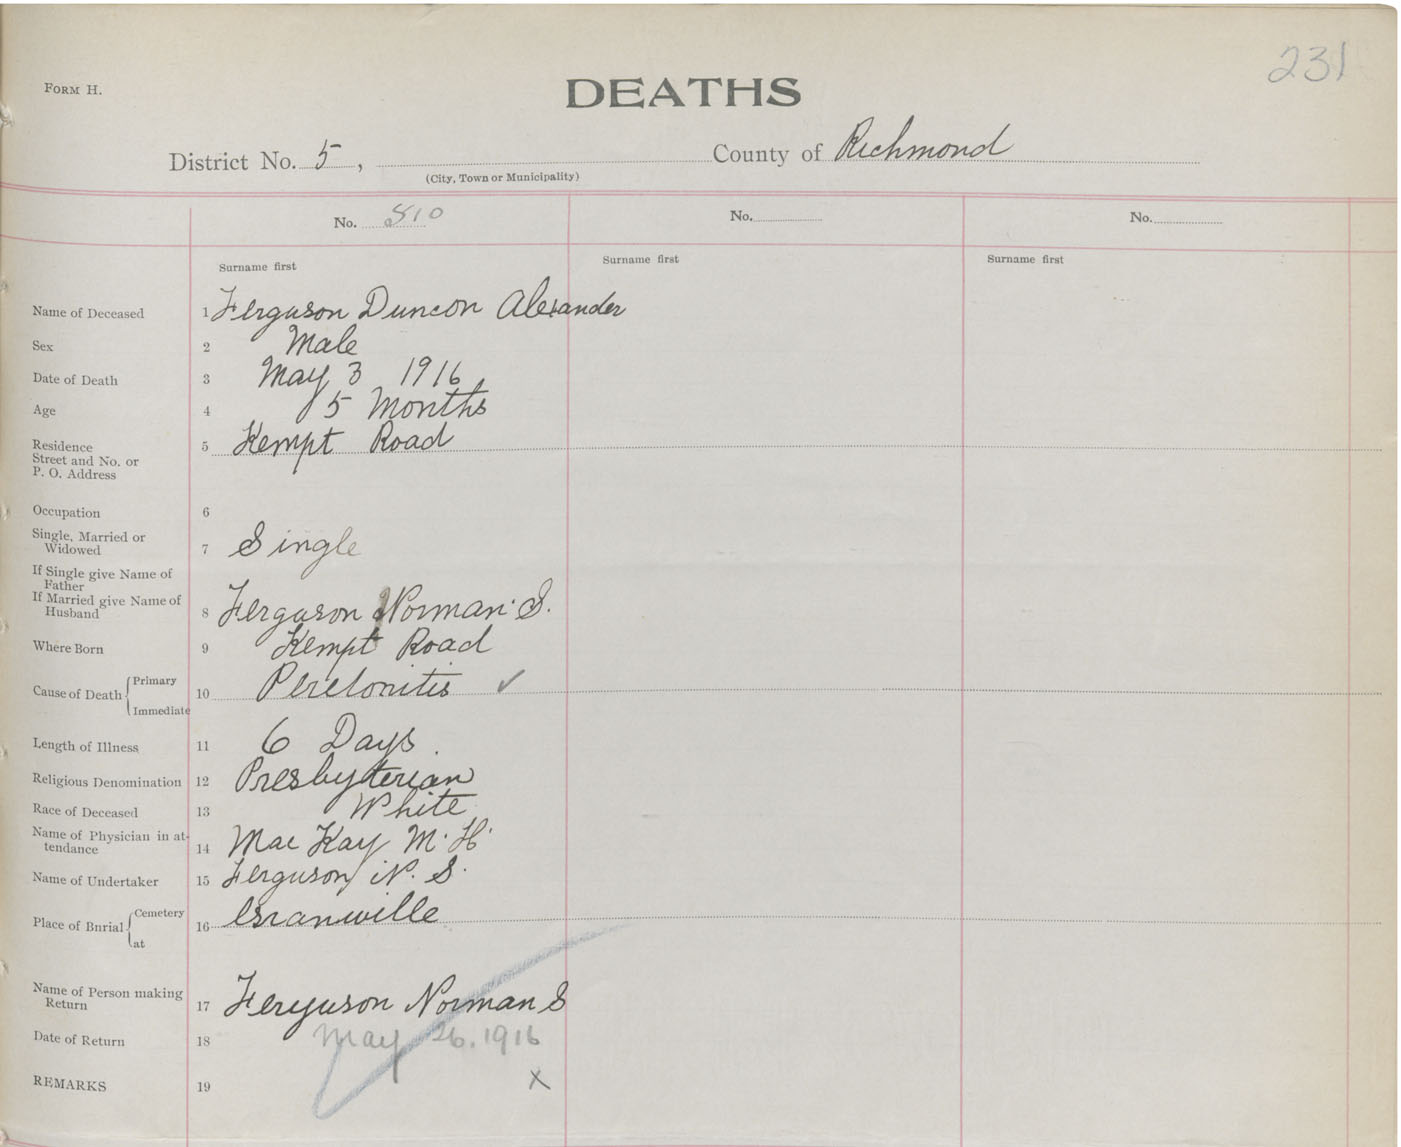 231
Form H.
DEATHS
District No. 5, County of Richmond
(City, Town or Municipality)
No. 510 No. No.
Surname first Surname first Surname first
Name of Deceased 1 Ferguson Duncon Alexander
Sex 2 Male
Date of Death 3 May 3 1916
Age 4 5 Months
Residence 5 Kempt Road
Street and No. or
P. O. Address
Occupation 6
Single, Married or
Widowed 7 Single
If Single give Name of
Father
If Married give Name of
Husband 8 Ferguson Norman S.
Where Born 9 Kempt Road
Cause of Death { Primary
10 Peretonitis ✓
Immediate
Length of Illness 11 6 Days.
Religious Denomination 12 Presbyterian
Race of Deceased 13 White
Name of Physician in at-
tendance 14 Mac Kay M. H.
Name of Undertaker 15 Ferguson N. S.
Place of Burial { Cemetery
16 Granville
at
Name of Person making
Return 17 Ferguson Norman S
Date of Return 18 May 26. 1916
REMARKS 19 X